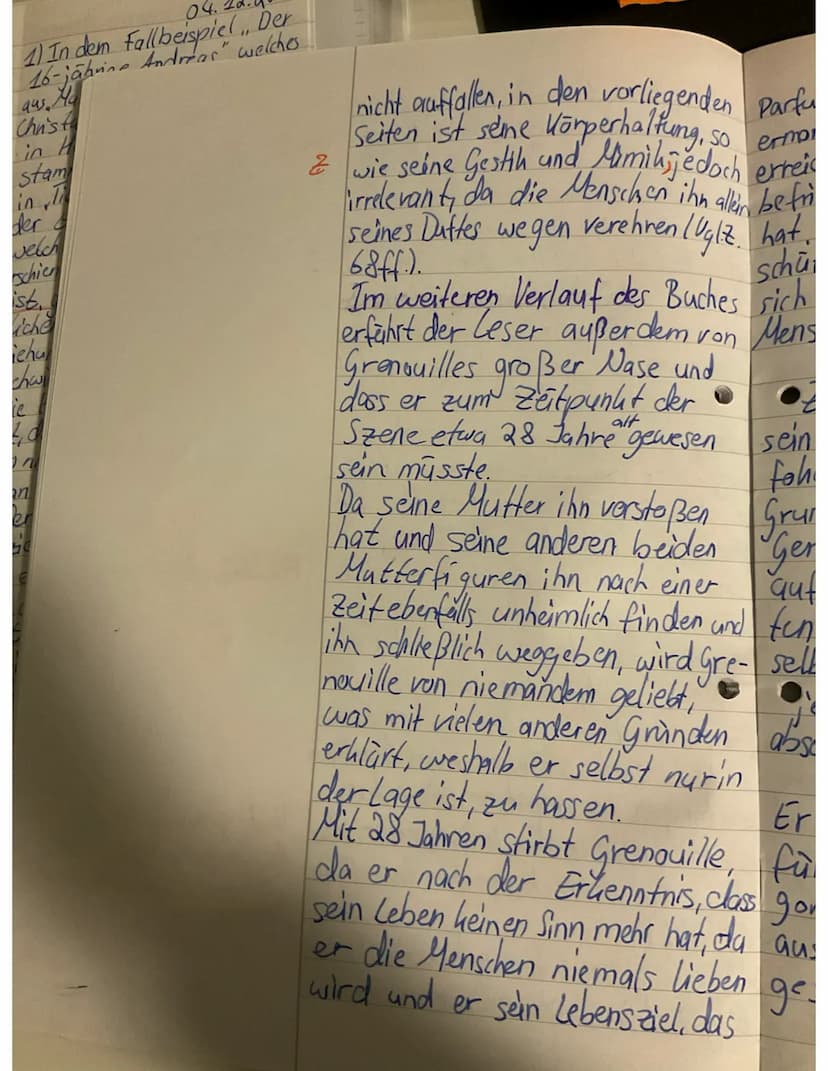 04.12.
1) In dem Fallbeispiel „Der
16-jährige Andreas" welches
aus
in
stam
in
der
welch
schien
ist.
liche
nicht auffallen, in den vorliegenden
Seiten ist seine Körperhaltung, so
z
wie seine Gestik und Mimik, jedoch
irrelevant, da die Menschen ihn allein
seines Duftes wegen verehren (Vgl. Z.
68ff.).
Im weiteren Verlauf des Buches
erfährt der Leser außerdem von
Grenouilles großer Nase und
dass er zum Zeitpunkt der
Szene etwa 28 Jahre alt gewesen
sein müsste.
Da seine Mutter ihn verstoßen
hat und seine anderen beiden
Mutterfiguren ihn nach einer
Zeit ebenfalls unheimlich finden und
ihn schließlich weggeben, wird Gre-
nouille von niemandem geliebt,
was mit vielen anderen Gründen
erklärt, weshalb er selbst nur in
der Lage ist, zu hassen.
Mit 28 Jahren stirbt Grenouille,
da er nach der Erkenntnis, dass
sein Leben keinen Sinn mehr hat, da
er die Menschen niemals lieben
wird und er sein Lebensziel, das
Parfu
ermor
erreic
befri
hat.
schü
sich
Mens
sein
Grun
Ger
auf
ten
selb
abso
Er
fü
aus
ge